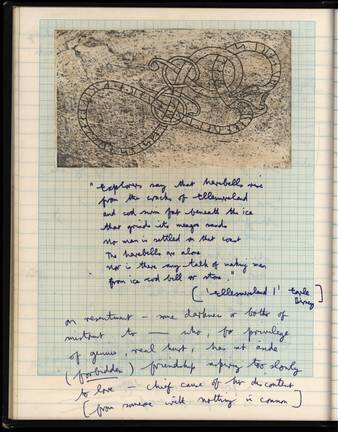 "Explorers say that harebells rise
from the cracks of Ellesmereland
and cod swim fat beneath the ice
that grinds its meagre sands
No man is settled on that coast
The harebells are alone
Nor is there any talk of making man
from ice cod bell or stone."
['Ellesmereland I' Earle
Birney]
on resentment – some darkness or both of
mistrust to — who, for privilege
of genius, real hurt, has set aside
(forbidden) friendship aspiring too slowly
to love – chief cause of her discontent
[from someone with nothing in common]